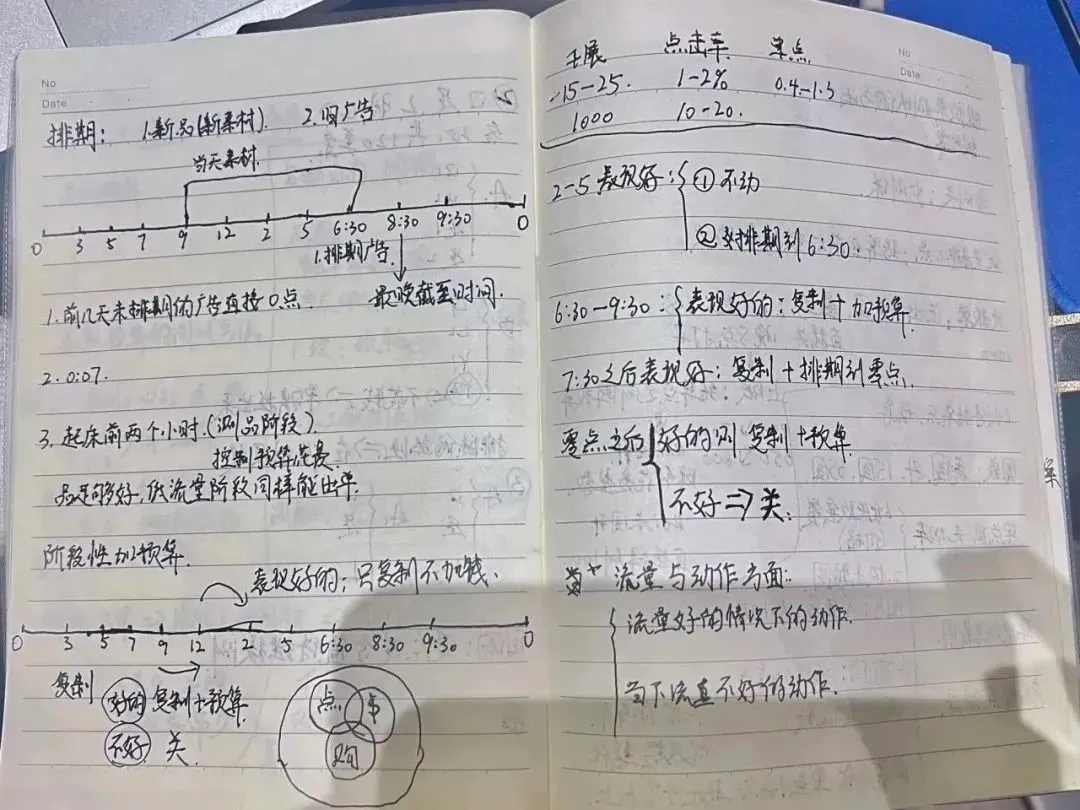 No
Date
排期: 1.新品(新素材). 2.旧广告
当天素材.
0 3 5 7 9 12 2 5 6:30 8:30 9:30 0
1.排期广告.
最晚截至时间.
1.前几天未排期的广告直接0点
2. 0:07.
3. 起床前两个小时.(测品阶段)
控制预算花费
品足够好,低流量阶段同样能出单.
阶段性加预算.
表现好的;只复制不加钱.
0 3 5 7 9 12 2 5 6:30 8:30 9:30 0
复制
好的 复制+预算.
不好 关.
点 事
购
No
Date
千展 点击率 单点
15-25. 1-2% 0.4-1.3
1000 10-20.
2-5表现好: ① 不动
② 排期到6:30.
6:30-9:30: 表现好的:复制+加预算.
7:30之后表现好:复制+排期到零点.
零点之后 好的则 复制+预算.
不好=>关.
流量与动作方面:
流量好的情况下的动作.
当下流量不好的动作.